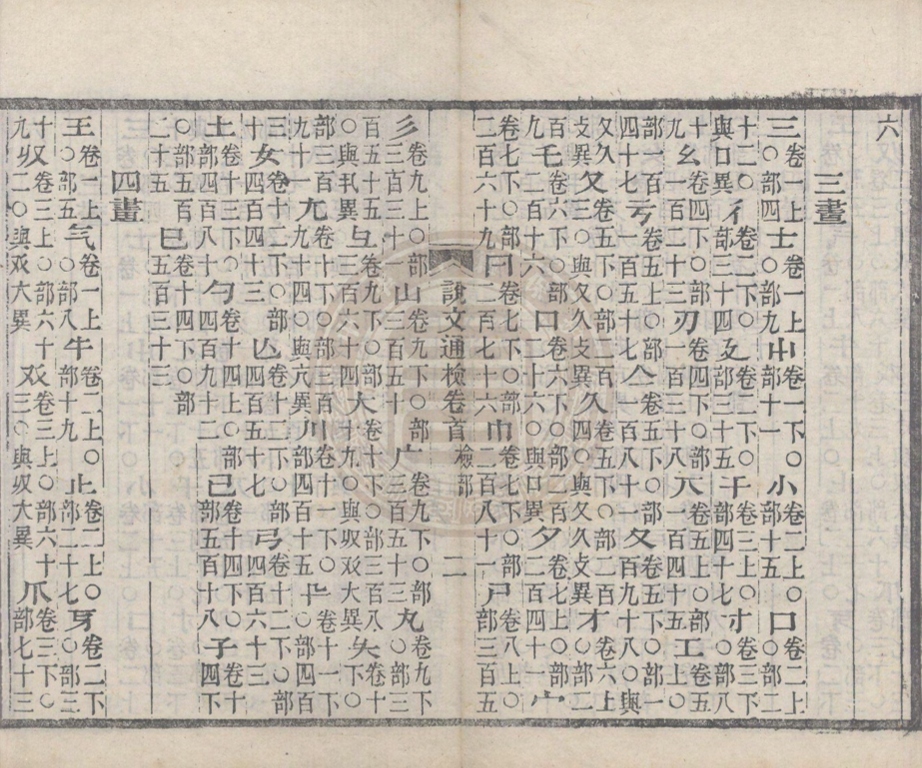 六
三畫
三卷一上○部四士卷一上○部九屮卷一下○部十一小卷二上○部十五口卷二上○部二
十二○與囗異彳卷二下○部三十四廴卷二下○部三十五干卷三上○部四十七寸卷三下○部八
十九幺卷四下○部一百二十三刃卷四下○部一百三十八丌卷五上○部一百四十五工卷五上○
部一百四十七亏卷五上○部一百五十七亼卷五下○部一百八十夂卷五下○部一百九十八○與
夊久攵異夊卷五下○部二百三○與夂久攵異久卷五下○部二百四○與夂夊攵異才卷六上○部二
百九乇卷六下○部二百十六囗卷六下○部二百二十六○與口異夕卷七上○部二百四十一宀
卷七下○部二百六十九冃卷七下○部二百七十六巾卷七下○部二百八十一尸卷八上○部三百五
說文通檢卷首 檢部 二
彡卷九上○部三百三十山卷九下○部三百五十广卷九下○部三百五十三丸卷九下○部三
百五十五○與丮異彑卷九下○部三百六十四大卷十下○部三百八十九○與𠬞𠬜大異夨卷十下○
部三百九十一尢卷十下○部三百九十四○與亢異川卷十一下○部四百十五卂卷十一下○部四百
二十女卷十二下○部四百四十三亾卷十二下○部四百五十七弓卷十二下○部四百六十三
土卷十三下○部四百八十勺卷十四上○部四百九十二己卷十四下○部五百十八子卷十四下
○部五百二十五巳卷十四下○部五百三十三
四畫
王卷一上○部五气卷一上○部八牛卷二上○部十九止卷二上○部二十七牙卷二下○部三
十九𠬞卷三上○部六十二○與𠬜大異𠬜卷三上○部六十三○與𠬞大異爪卷三下○部七十三